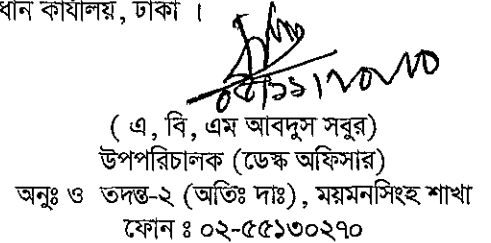 ধান কার্যালয়, ঢাকা ।
( এ, বি, এম আবদুস সবুর)
উপপরিচালক (ডেস্ক অফিসার)
অনুঃ ও তদন্ত-২ (অতিঃ দাঃ), ময়মনসিংহ শাখা
ফোন ঃ ০২-৫৫১৩০২৭০